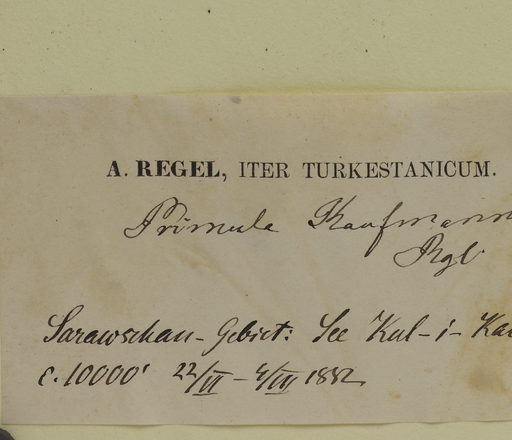 A. REGEL, ITER TURKESTANICUM.
Primula Kaufmann
Rgl
Sarawschan-Gebiet: See Kul-i-Ka
c. 10000' 22/VI - 4/VII 1882